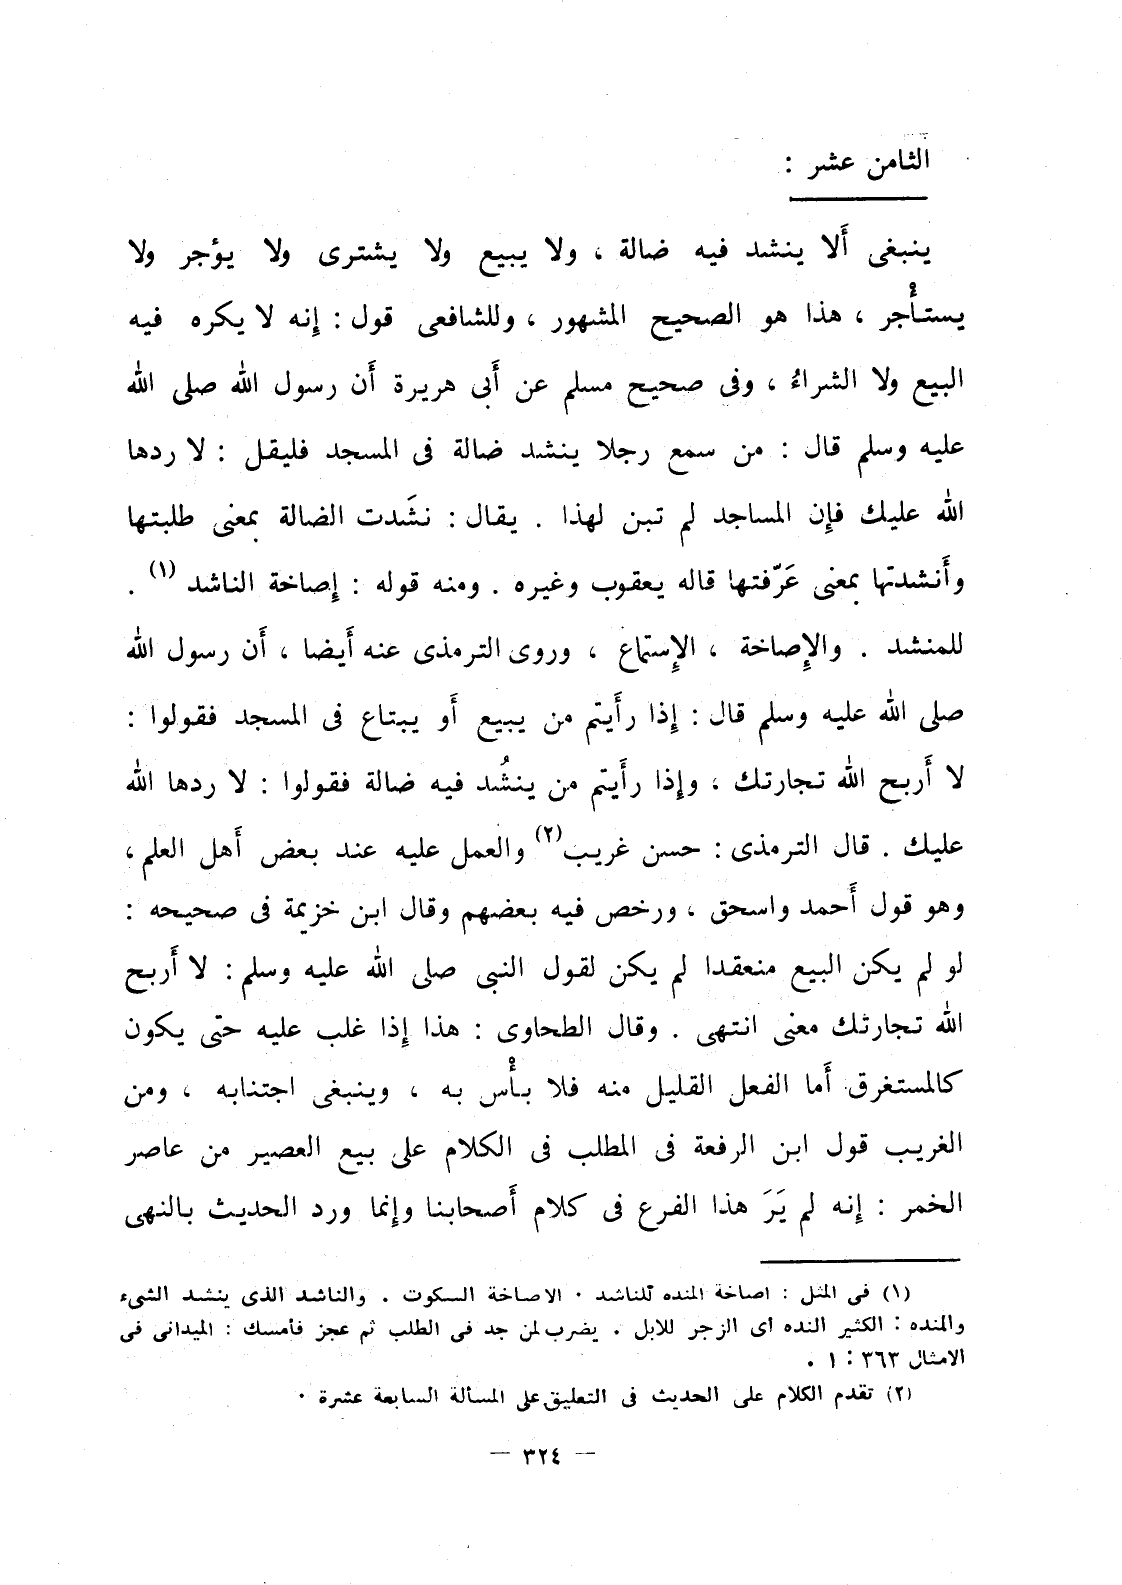 الثامن عشر :
ينبغى أَلا ينشد فيه ضالة ، ولا يبيع ولا يشترى ولا يؤجر ولا
يستأْجر ، هذا هو الصحيح المشهور ، وللشافعى قول : إِنه لا يكره فيه
البيع ولا الشراءُ ، وفى صحيح مسلم عن أَبى هريرة أَن رسول الله صلى الله
عليه وسلم قال : من سمع رجلا ينشد ضالة فى المسجد فليقل : لا ردها
الله عليك فإِن المساجد لم تبن لهذا . يقال : نشَدت الضالة بمعنى طلبتها
وأَنشدتها بمعنى عَرّفتها قاله يعقوب وغيره . ومنه قوله : إِصاخة الناشد (١) .
للمنشد . والإِصاخة ، الإِستماع ، وروى الترمذى عنه أَيضا ، أَن رسول الله
صلى الله عليه وسلم قال : إِذا رأَيتم من يبيع أَو يبتاع فى المسجد فقولوا :
لا أَربح الله تجارتك ، وإِذا رأَيتم من ينشُد فيه ضالة فقولوا : لا ردها الله
عليك . قال الترمذى : حسن غريب (٢) والعمل عليه عند بعض أَهل العلم ،
وهو قول أَحمد واسحق ، ورخص فيه بعضهم وقال ابن خزيمة فى صحيحه :
لو لم يكن البيع منعقدا لم يكن لقول النبى صلى الله عليه وسلم : لا أَربح
الله تجارتك معنى انتهى . وقال الطحاوى : هذا إِذا غلب عليه حتى يكون
كالمستغرق أَما الفعل القليل منه فلا بأْس به ، وينبغى اجتنابه ، ومن
الغريب قول ابن الرفعة فى المطلب فى الكلام على بيع العصير من عاصر
الخمر : إِنه لم يَرَ هذا الفرع فى كلام أَصحابنا وإِنما ورد الحديث بالنهى
(١) فى المثل : اصاخة المنده للناشد · الاصاخة السكوت . والناشد الذى ينشد الشىء
والمنده : الكثير النده اى الزجر للابل . يضرب لمن جد فى الطلب ثم عجز فأمسك : الميدانى فى
الامثال ٣٦٣ : ١ .
(٢) تقدم الكلام على الحديث فى التعليق على المسألة السابعة عشرة ·
— ٣٢٤ —